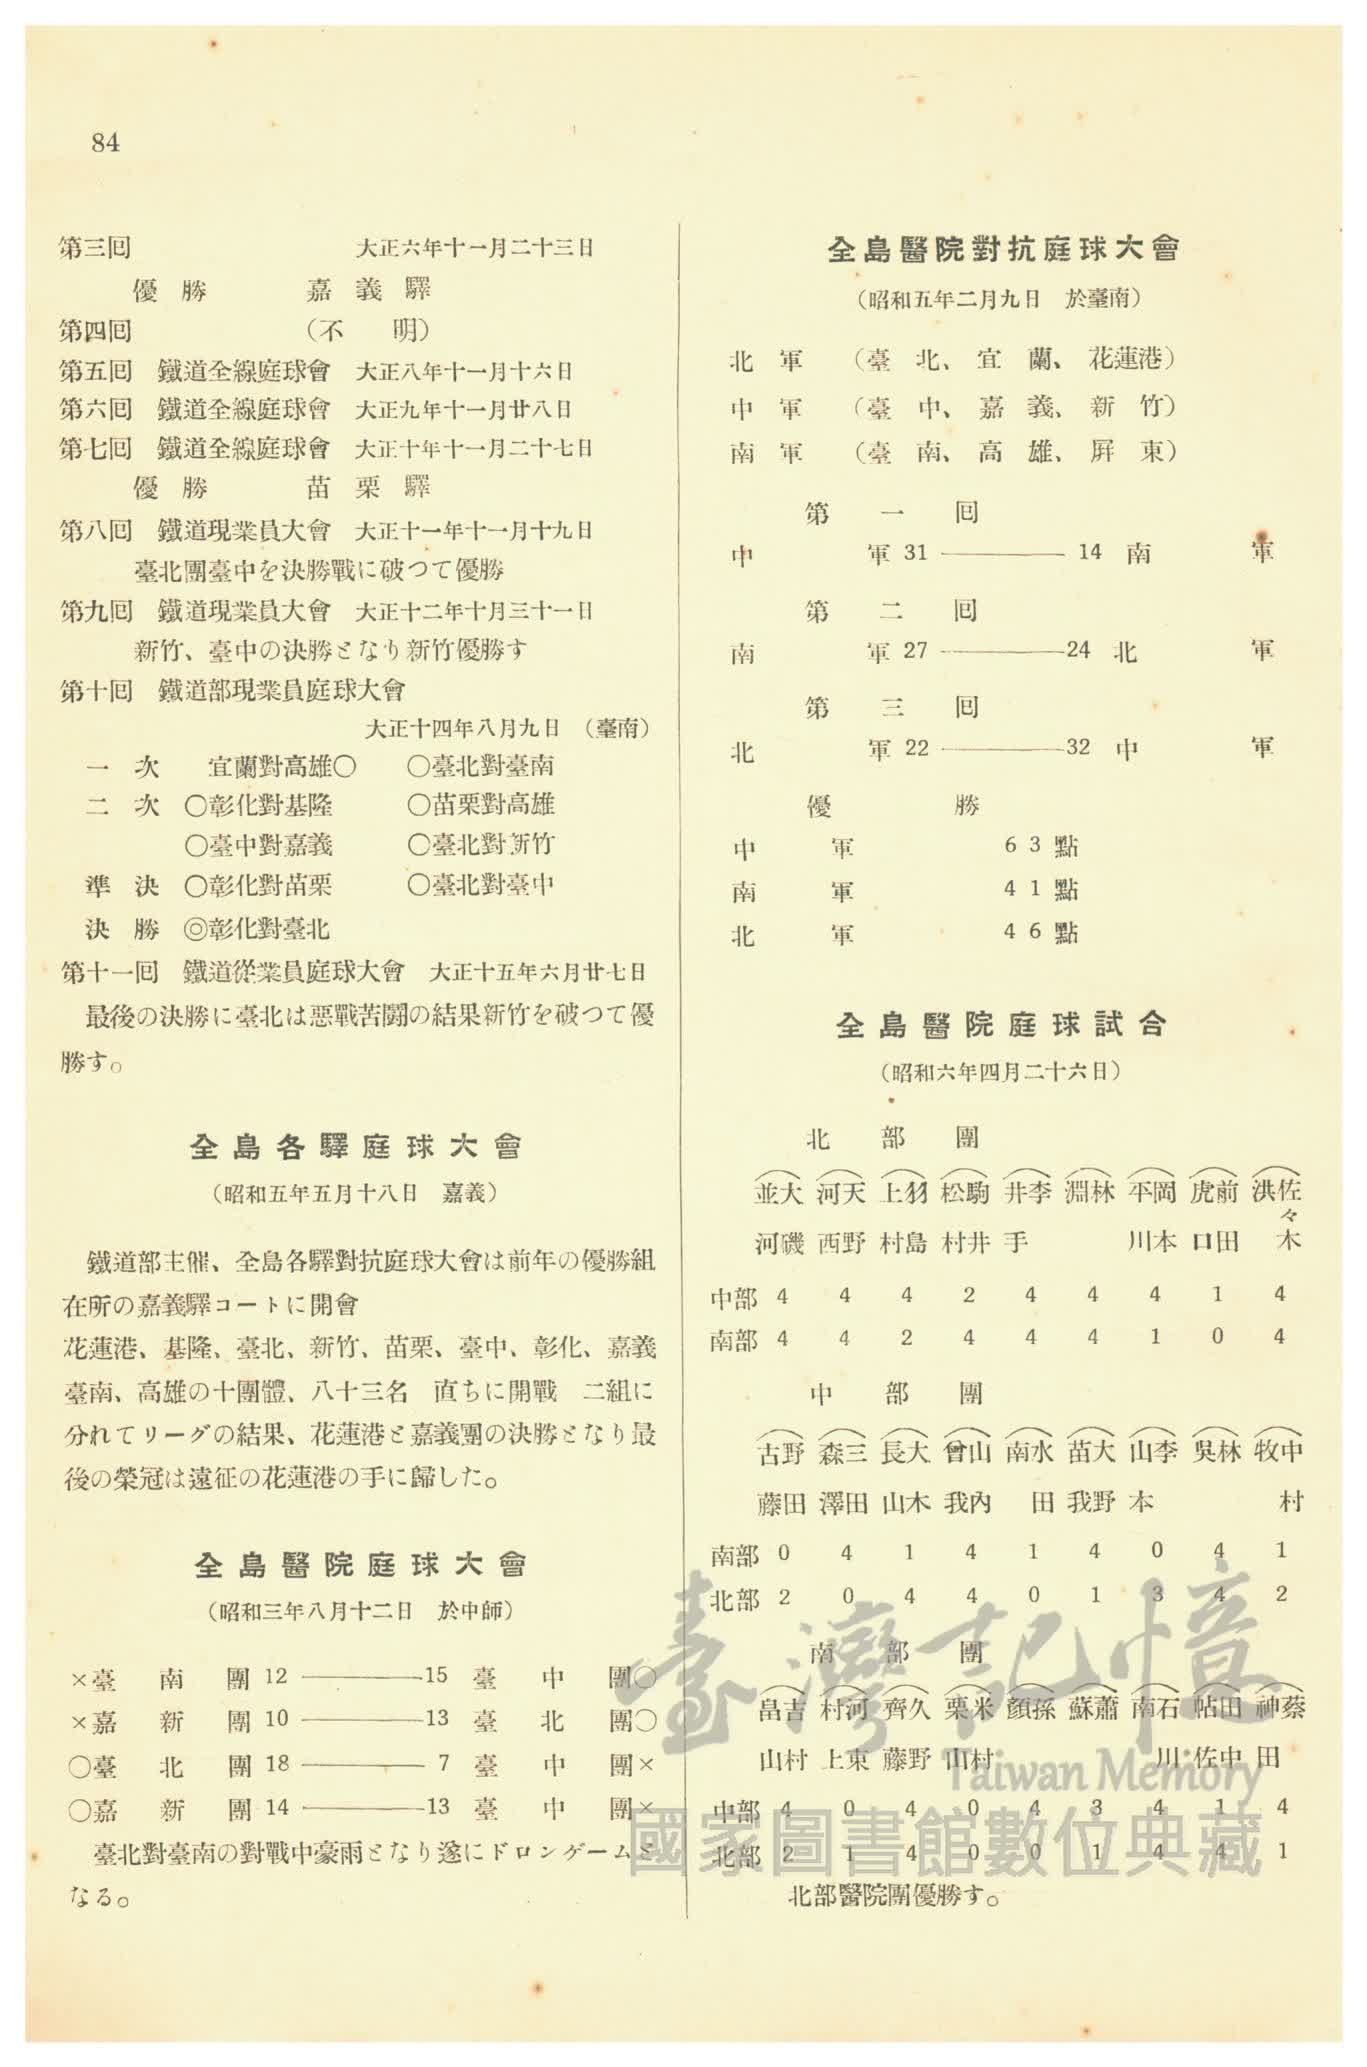 84
第三囘　大正六年十一月二十三日
優勝　嘉義驛
第四囘　（不明）
第五囘　鐵道全線庭球會　大正八年十一月十六日
第六囘　鐵道全線庭球會　大正九年十一月廿八日
第七囘　鐵道全線庭球會　大正十年十一月二十七日
優勝　苗栗驛
第八囘　鐵道現業員大會　大正十一年十一月十九日
臺北團臺中を決勝戰に破つて優勝
第九囘　鐵道現業員大會　大正十二年十月三十一日
新竹、臺中の決勝となり新竹優勝す
第十囘　鐵道部現業員庭球大會
大正十四年八月九日　（臺南）
一次　宜蘭對高雄○　○臺北對臺南
二次　○彰化對基隆　○苗栗對高雄
○臺中對嘉義　○臺北對新竹
準決　○彰化對苗栗　○臺北對臺中
決勝　◎彰化對臺北
第十一囘　鐵道從業員庭球大會　大正十五年六月廿七日
最後の決勝に臺北は惡戰苦鬪の結果新竹を破つて優
勝す。
全島各驛庭球大會
（昭和五年五月十八日　嘉義）
鐵道部主催、全島各驛對抗庭球大會は前年の優勝組
在所の嘉義驛コートに開會
花蓮港、基隆、臺北、新竹、苗栗、臺中、彰化、嘉義
臺南、高雄の十團體、八十三名　直ちに開戰　二組に
分れてリーグの結果、花蓮港と嘉義團の決勝となり最
後の榮冠は遠征の花蓮港の手に歸した。
全島醫院庭球大會
（昭和三年八月十二日　於中師）
×臺南團 12 ——— 15 臺中團○
×嘉新團 10 ——— 13 臺北團○
○臺北團 18 ——— 7 臺中團×
○嘉新團 14 ——— 13 臺中團×
臺北對臺南の對戰中豪雨となり遂にドロンゲームと
なる。
全島醫院對抗庭球大會
（昭和五年二月九日　於臺南）
北軍　（臺北、宜蘭、花蓮港）
中軍　（臺中、嘉義、新竹）
南軍　（臺南、高雄、屛東）
第一囘
中軍 31 ——— 14 南軍
第二囘
南軍 27 ——— 24 北軍
第三囘
北軍 22 ——— 32 中軍
優勝
中軍　63點
南軍　41點
北軍　46點
全島醫院庭球試合
（昭和六年四月二十六日）
北部團
並大　河天　上羽　松駒　井李　淵林　平岡　虎前　洪佐々
河磯　西野　村島　村井　手　川本　口田　木
中部 4 4 4 2 4 4 4 1 4
南部 4 4 2 4 4 4 1 0 4
中部團
古野　森三　長大　曾山　南水　苗大　山李　吳林　牧中
藤田　澤田　山木　我內　田　我野　本　村
南部 0 4 1 4 1 4 0 4 1
北部 2 0 4 4 0 1 3 4 2
南部團
畠吉　村河　齊久　栗米　顏孫　蘇蕭　南石　帖田　神蔡
山村　上東　藤野　山村　川　佐中　田
中部 4 0 4 0 4 3 4 1 4
北部 2 1 4 0 0 1 4 4 1
北部醫院團優勝す。
臺灣記憶
Taiwan Memory
國家圖書館數位典藏